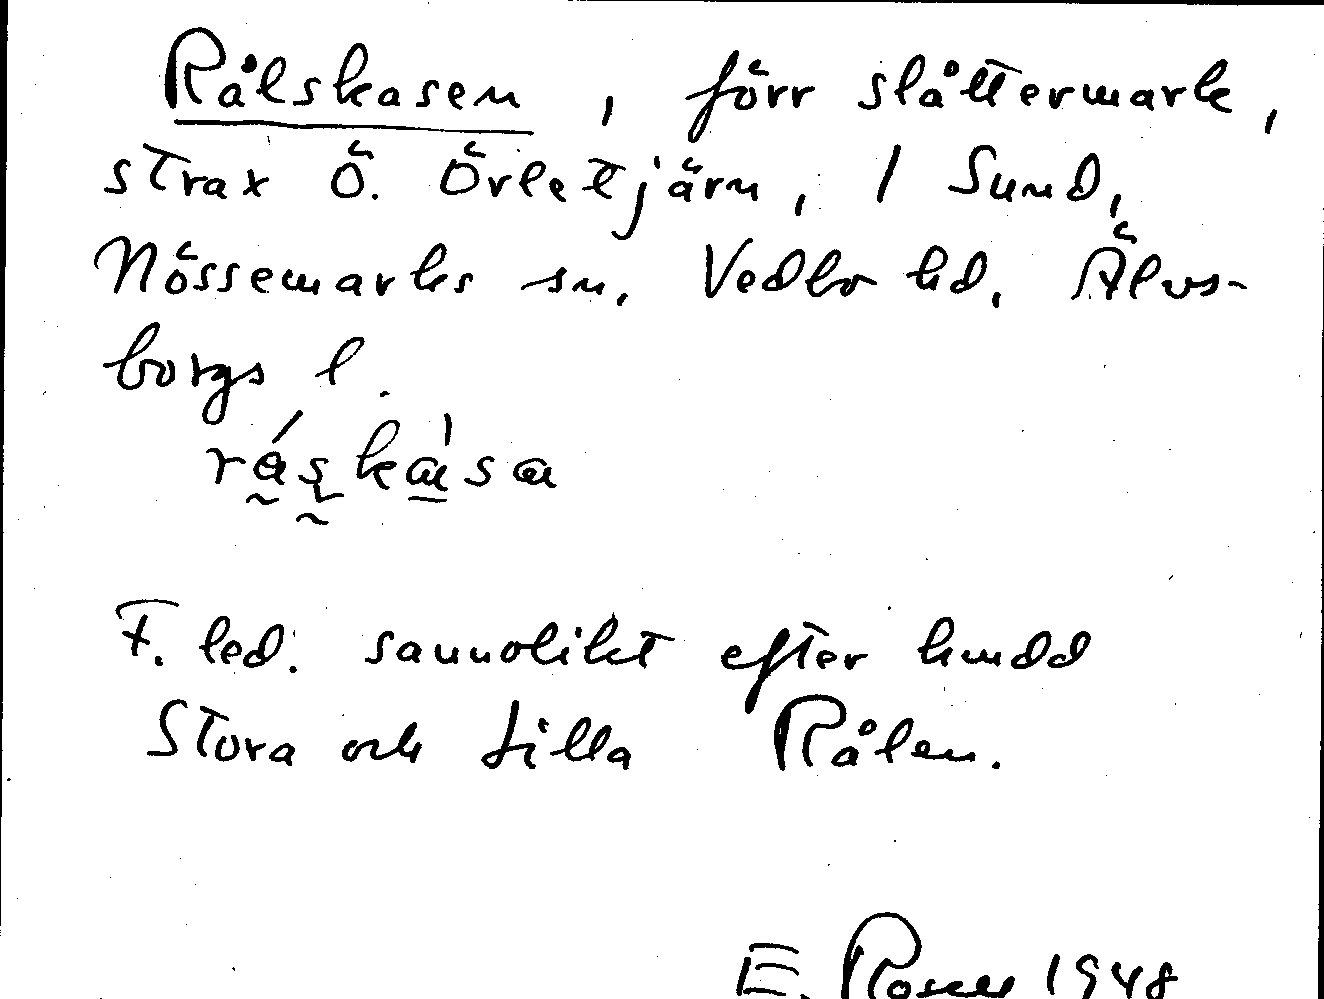 Rålskasen, förr slåttermark,
strax Ö. Örletjärn, 1 Sund,
Nössemarks sn, Vedbo hd, Älvs-
borgs l.
F. led. sannolikt efter
Stora och Lilla Rålen.
E. Rosell 1948